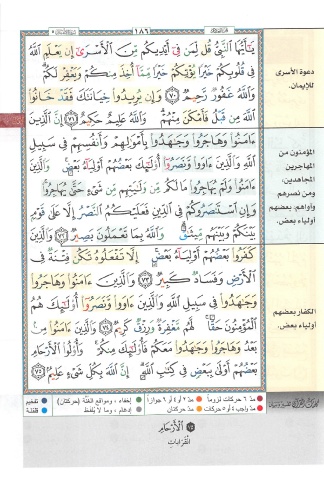 ١٨٦
يَٰٓأَيُّهَا ٱلنَّبِيُّ قُل لِّمَن فِيٓ أَيۡدِيكُم مِّنَ ٱلۡأَسۡرَىٰٓ إِن يَعۡلَمِ ٱللَّهُ
فِي قُلُوبِكُمۡ خَيۡرٗا يُؤۡتِكُمۡ خَيۡرٗا مِّمَّآ أُخِذَ مِنكُمۡ وَيَغۡفِرۡ لَكُمۡۚ
وَٱللَّهُ غَفُورٞ رَّحِيمٞ ٧٠ وَإِن يُرِيدُواْ خِيَانَتَكَ فَقَدۡ خَانُواْ
ٱللَّهَ مِن قَبۡلُ فَأَمۡكَنَ مِنۡهُمۡۗ وَٱللَّهُ عَلِيمٌ حَكِيمٌ ٧١ إِنَّ ٱلَّذِينَ
ءَامَنُواْ وَهَاجَرُواْ وَجَٰهَدُواْ بِأَمۡوَٰلِهِمۡ وَأَنفُسِهِمۡ فِي سَبِيلِ
ٱللَّهِ وَٱلَّذِينَ ءَاوَواْ وَّنَصَرُوٓاْ أُوْلَٰٓئِكَ بَعۡضُهُمۡ أَوۡلِيَآءُ بَعۡضٖۚ وَٱلَّذِينَ
ءَامَنُواْ وَلَمۡ يُهَاجِرُواْ مَا لَكُم مِّن وَلَٰيَتِهِم مِّن شَيۡءٍ حَتَّىٰ يُهَاجِرُواْۚ
وَإِنِ ٱسۡتَنصَرُوكُمۡ فِي ٱلدِّينِ فَعَلَيۡكُمُ ٱلنَّصۡرُ إِلَّا عَلَىٰ قَوۡمِۭ
بَيۡنَكُمۡ وَبَيۡنَهُم مِّيثَٰقٞۗ وَٱللَّهُ بِمَا تَعۡمَلُونَ بَصِيرٞ ٧٢ وَٱلَّذِينَ
كَفَرُواْ بَعۡضُهُمۡ أَوۡلِيَآءُ بَعۡضٍۚ إِلَّا تَفۡعَلُوهُ تَكُن فِتۡنَةٞ فِي
ٱلۡأَرۡضِ وَفَسَادٞ كَبِيرٞ ٧٣ وَٱلَّذِينَ ءَامَنُواْ وَهَاجَرُواْ
وَجَٰهَدُواْ فِي سَبِيلِ ٱللَّهِ وَٱلَّذِينَ ءَاوَواْ وَّنَصَرُوٓاْ أُوْلَٰٓئِكَ هُمُ
ٱلۡمُؤۡمِنُونَ حَقّٗاۚ لَّهُم مَّغۡفِرَةٞ وَرِزۡقٞ كَرِيمٞ ٧٤ وَٱلَّذِينَ ءَامَنُواْ مِنۢ
بَعۡدُ وَهَاجَرُواْ وَجَٰهَدُواْ مَعَكُمۡ فَأُوْلَٰٓئِكَ مِنكُمۡۚ وَأُوْلُواْ ٱلۡأَرۡحَامِ
بَعۡضُهُمۡ أَوۡلَىٰ بِبَعۡضٖ فِي كِتَٰبِ ٱللَّهِۚ إِنَّ ٱللَّهَ بِكُلِّ شَيۡءٍ عَلِيمُۢ ٧٥
دعوة الأسرى
للإيمان.
المؤمنون من
المهاجرين
المجاهدين،
ومن نصرهم
وآواهم: بعضهم
أولياء بعض.
الكفار بعضهم
أولياء بعض.
مدّ ٦ حركات لزوماً مدّ ٢ أو ٤ أو ٦ جوازاً إخفاء، ومواقع الغنّة (حركتان) تفخيم
مدّ واجب ٤ أو ٥ حركات مدّ حركتان إدغام، وما لا يُلفظ قلقلة
ٱلۡأَرۡحَامِ
القرابات